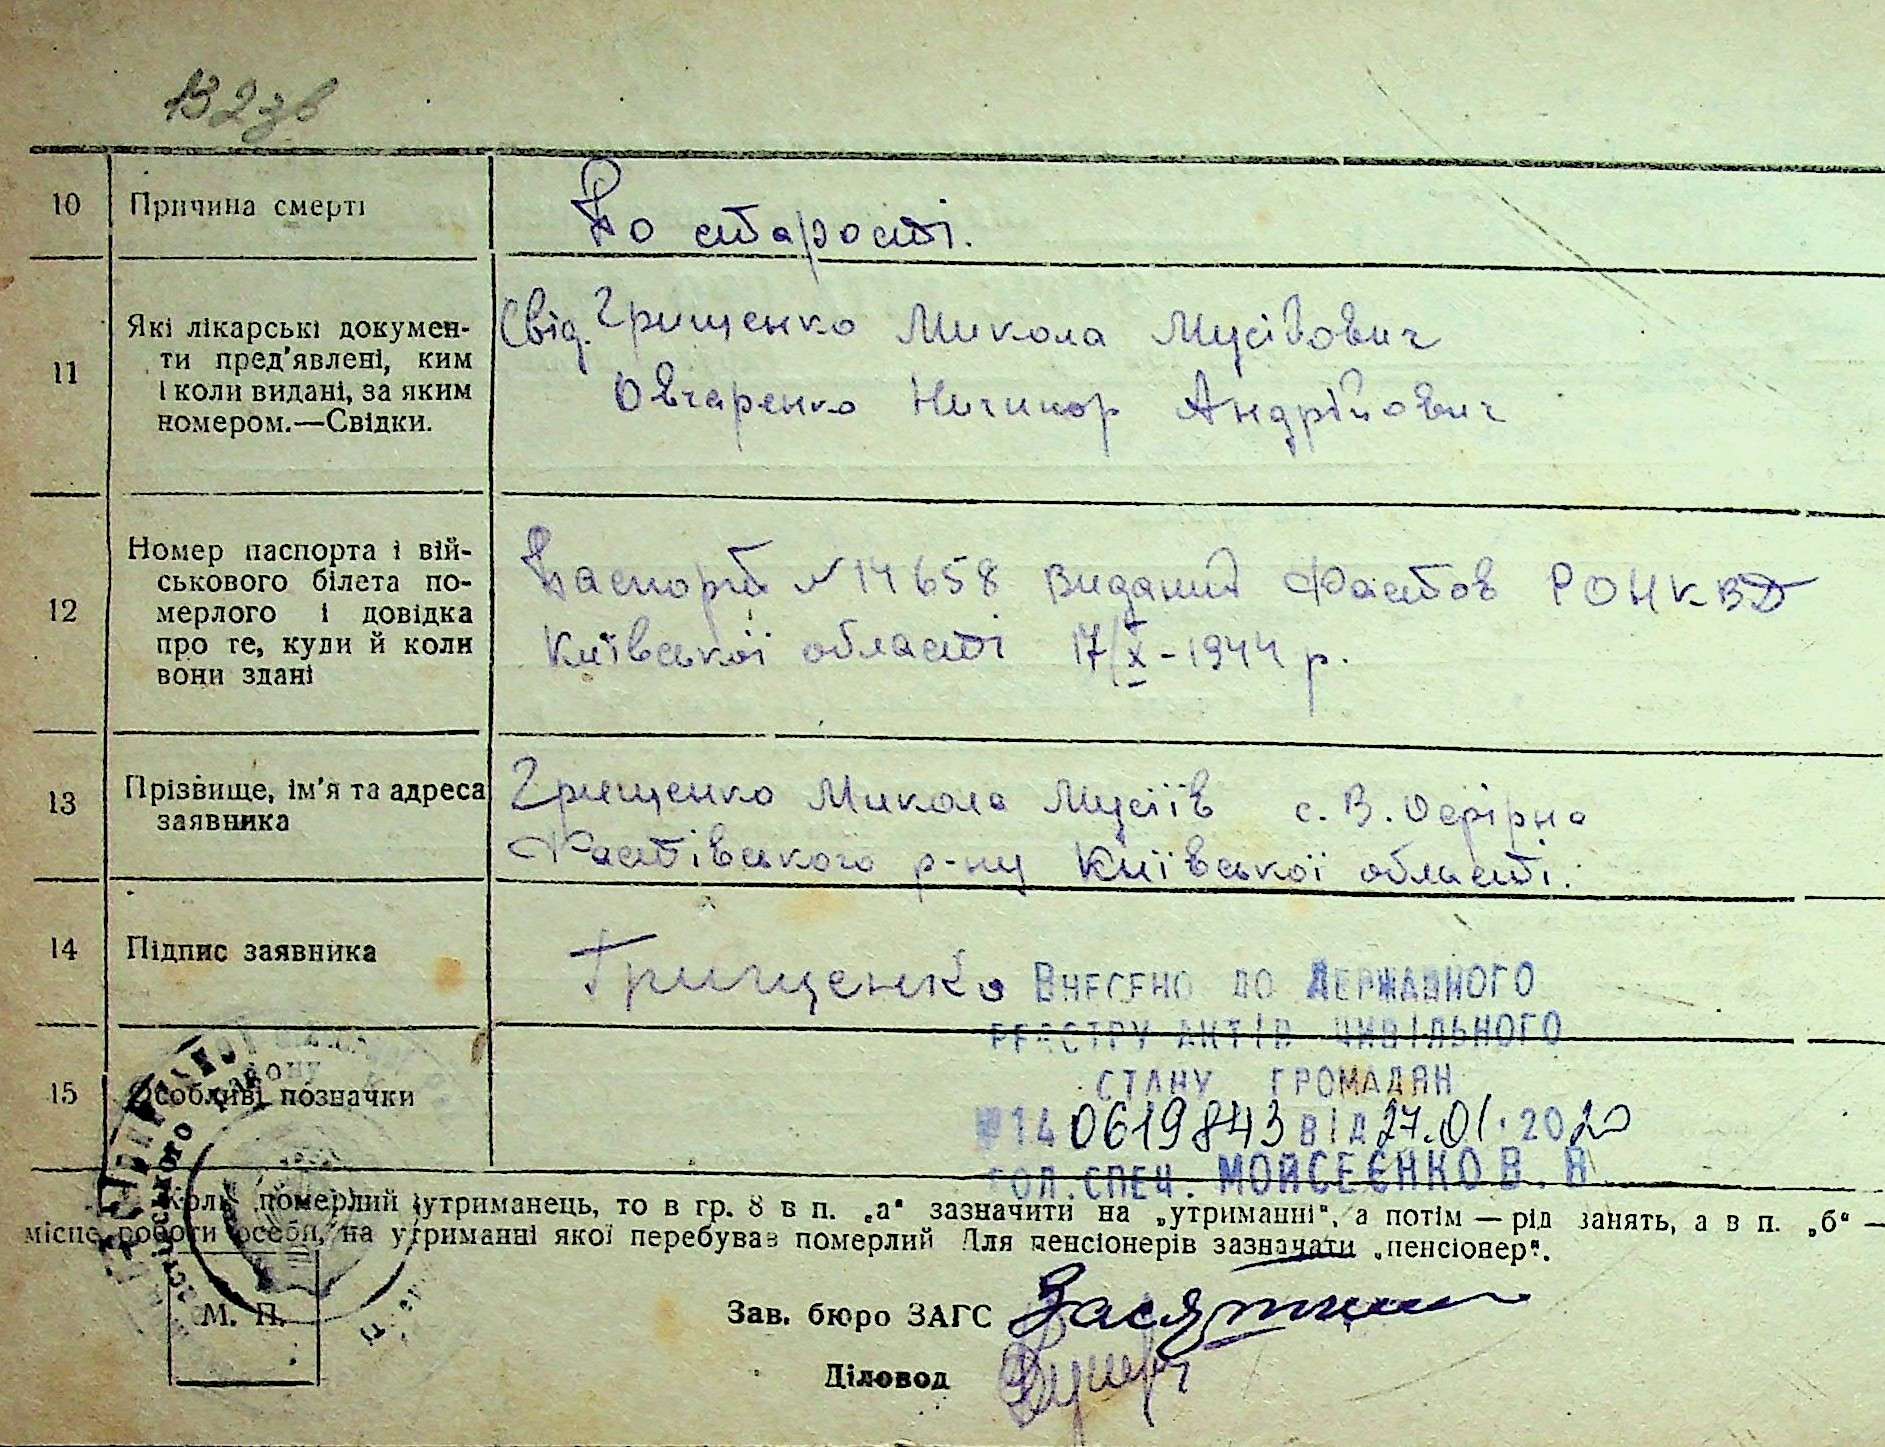 132зв
10 Причина смерті По старості.
11 Які лікарські докумен- Свід. Грищенко Микола Мусійович
ти пред'явлені, ким Овчаренко Ничипор Андрійович
і коли видані, за яким
номером.—Свідки.
12 Номер паспорта і вій- Паспорт № 14658 виданий Фастов РОНКВД
ськового білета по- Київської області 17/X - 1944 р.
мерлого і довідка
про те, куди й коли
вони здані
13 Прізвище, ім'я та адреса Грищенко Микола Мусіїв с. В. Офірна
заявника Фастівського р-ну Київської області.
14 Підпис заявника Грищенко
Внесено до Державного
реєстру актів цивільного
стану громадян
15 Особливі позначки
№ 14 0619843 від 27.01.2020
Гол. спец. Мойсеєнко В. В.
Коли померлий утриманець, то в гр. 8 в п. „а“ зазначити на „утриманні“, а потім — рід занять, а в п. „б“ —
місце роботи особи, на утриманні якої перебував померлий Для пенсіонерів зазначати „пенсіонер“.
М. П.
Зав. бюро ЗАГС
Діловод